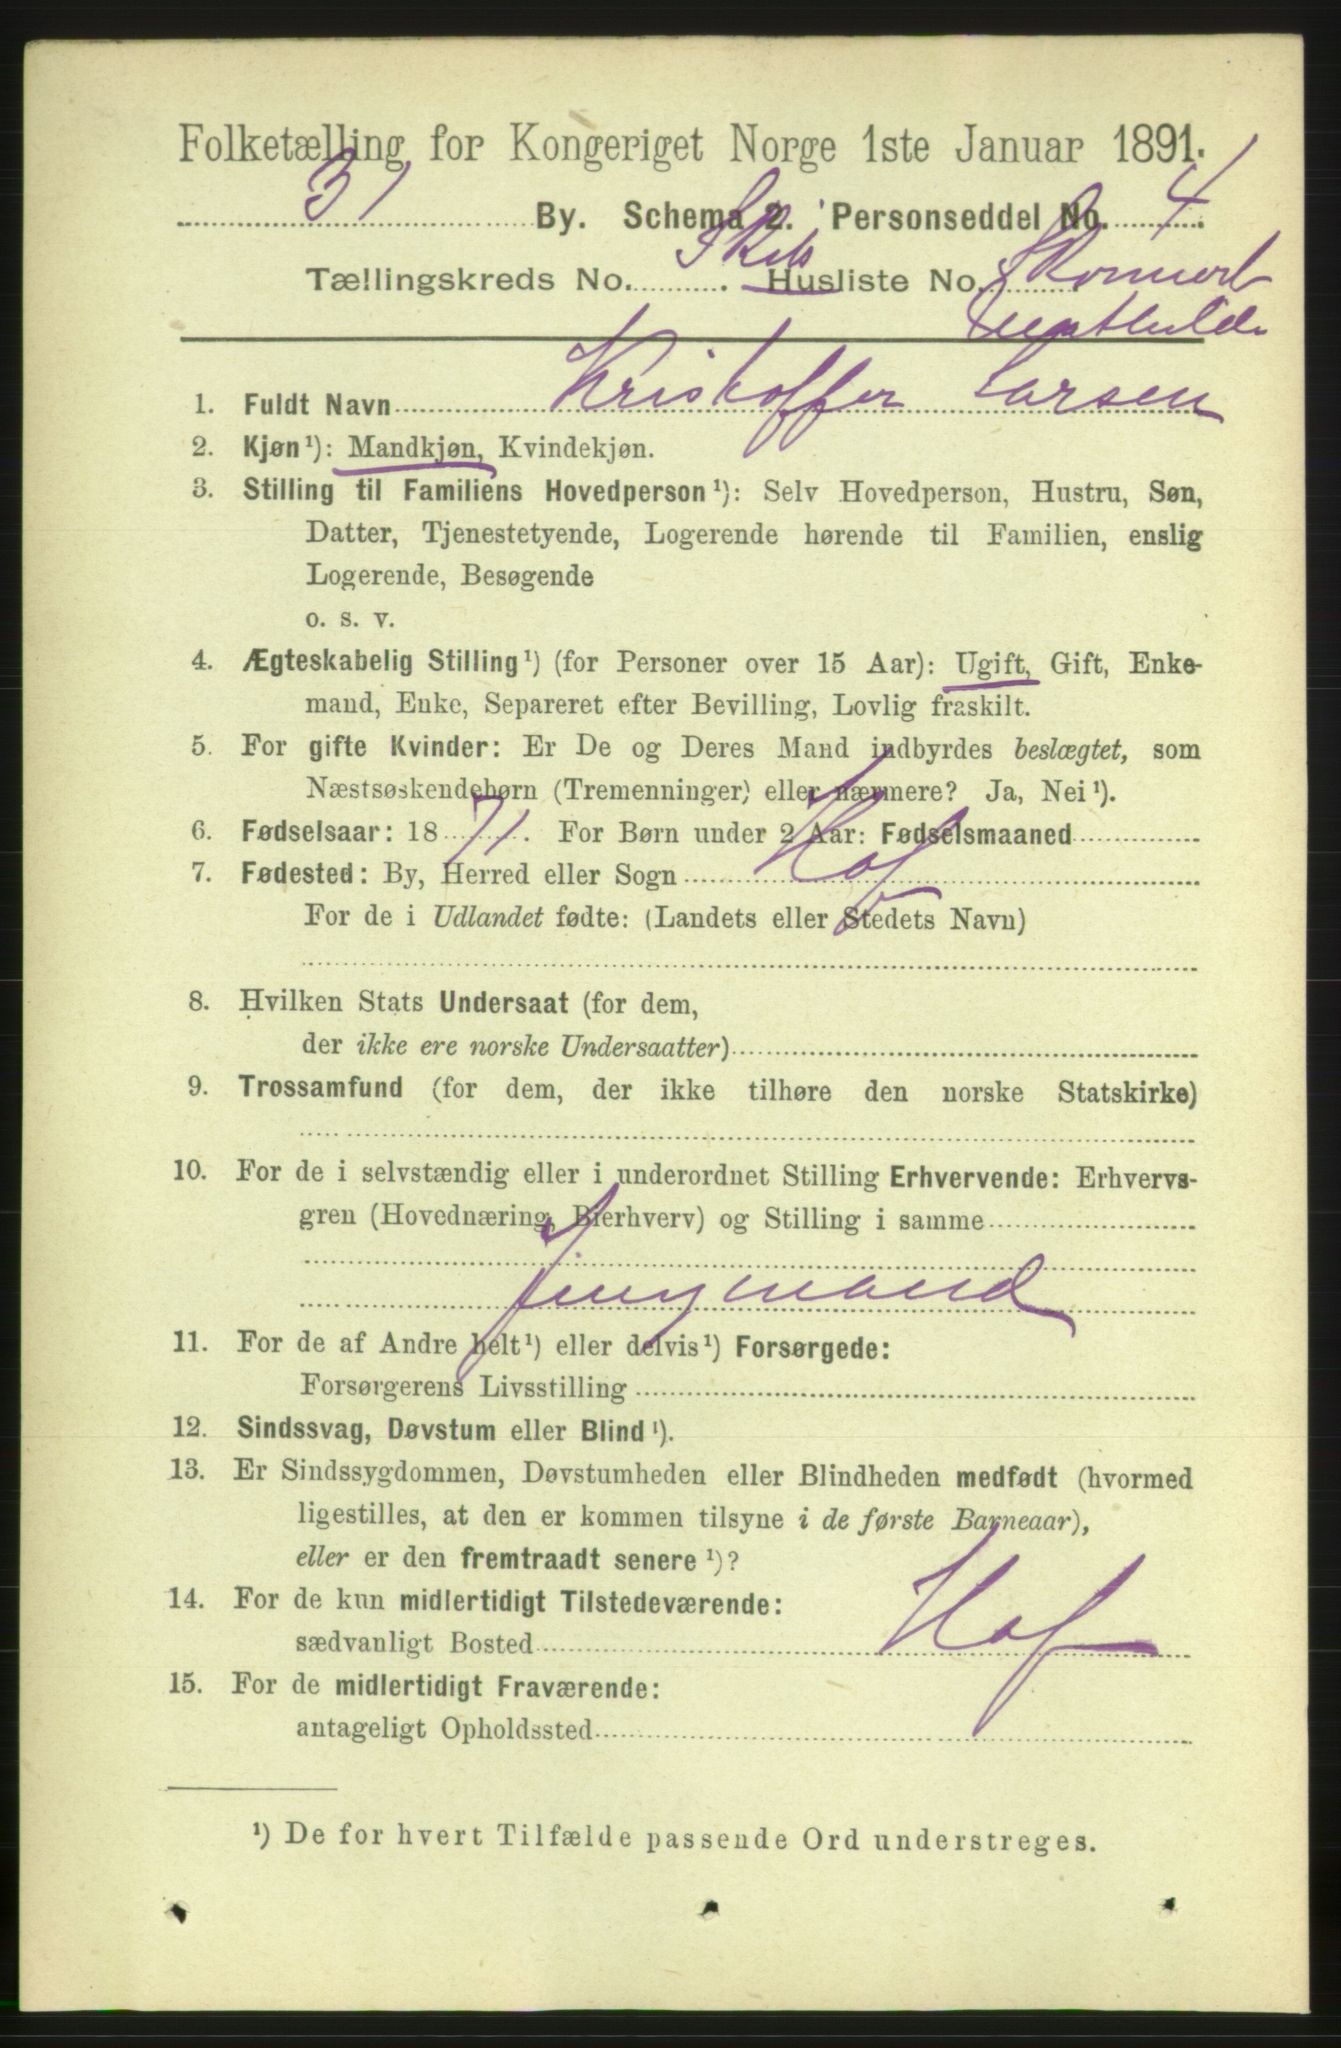 Folketælling for Kongeriget Norge 1ste Januar 1891.
31 By. Schema 2. Personseddel No. 4.
Skibs
Tællingskreds No. . Husliste No. Skonnert
Mathilde
1. Fuldt Navn Kristoffer Larsen
2. Kjøn¹): Mandkjøn, Kvindekjøn.
3. Stilling til Familiens Hovedperson¹): Selv Hovedperson, Hustru, Søn,
Datter, Tjenestetyende, Logerende hørende til Familien, enslig
Logerende, Besøgende
o. s. v.
4. Ægteskabelig Stilling¹) (for Personer over 15 Aar): Ugift, Gift, Enke-
mand, Enke, Separeret efter Bevilling, Lovlig fraskilt.
5. For gifte Kvinder: Er De og Deres Mand indbyrdes beslægtet, som
Næstsøskendebørn (Tremenninger) eller nærmere? Ja, Nei¹).
6. Fødselsaar: 1871. For Børn under 2 Aar: Fødselsmaaned
7. Fødested: By, Herred eller Sogn Hof
For de i Udlandet fødte: (Landets eller Stedets Navn)
8. Hvilken Stats Undersaat (for dem,
der ikke ere norske Undersaatter)
9. Trossamfund (for dem, der ikke tilhøre den norske Statskirke)
10. For de i selvstændig eller i underordnet Stilling Erhvervende: Erhvervs-
gren (Hovednæring, Bierhverv) og Stilling i samme
Jungmand
11. For de af Andre helt¹) eller delvis¹) Forsørgede:
Forsørgerens Livsstilling
12. Sindssvag, Døvstum eller Blind¹).
13. Er Sindssygdommen, Døvstumheden eller Blindheden medfødt (hvormed
ligestilles, at den er kommen tilsyne i de første Barneaar),
eller er den fremtraadt senere¹)?
14. For de kun midlertidigt Tilstedeværende:
sædvanligt Bosted Hof
15. For de midlertidigt Fraværende:
antageligt Opholdssted
¹) De for hvert Tilfælde passende Ord understreges.